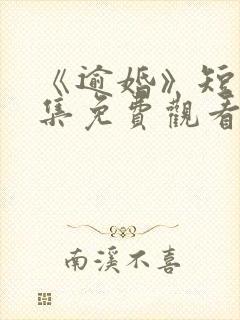 《逾婚》短
集免費觀看
南溪不喜